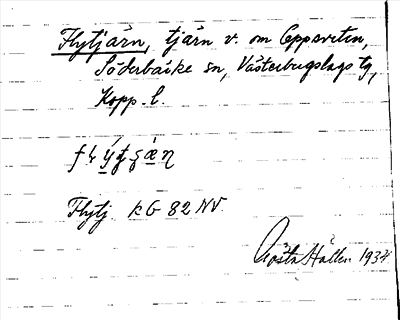 Flytjärn, tjärn v. om Oppsveten,
Söderbärke sn, Västerbergslags tg,
Kopp. l.
Flytj kG 82 NV.
Gösta Hallén 1934